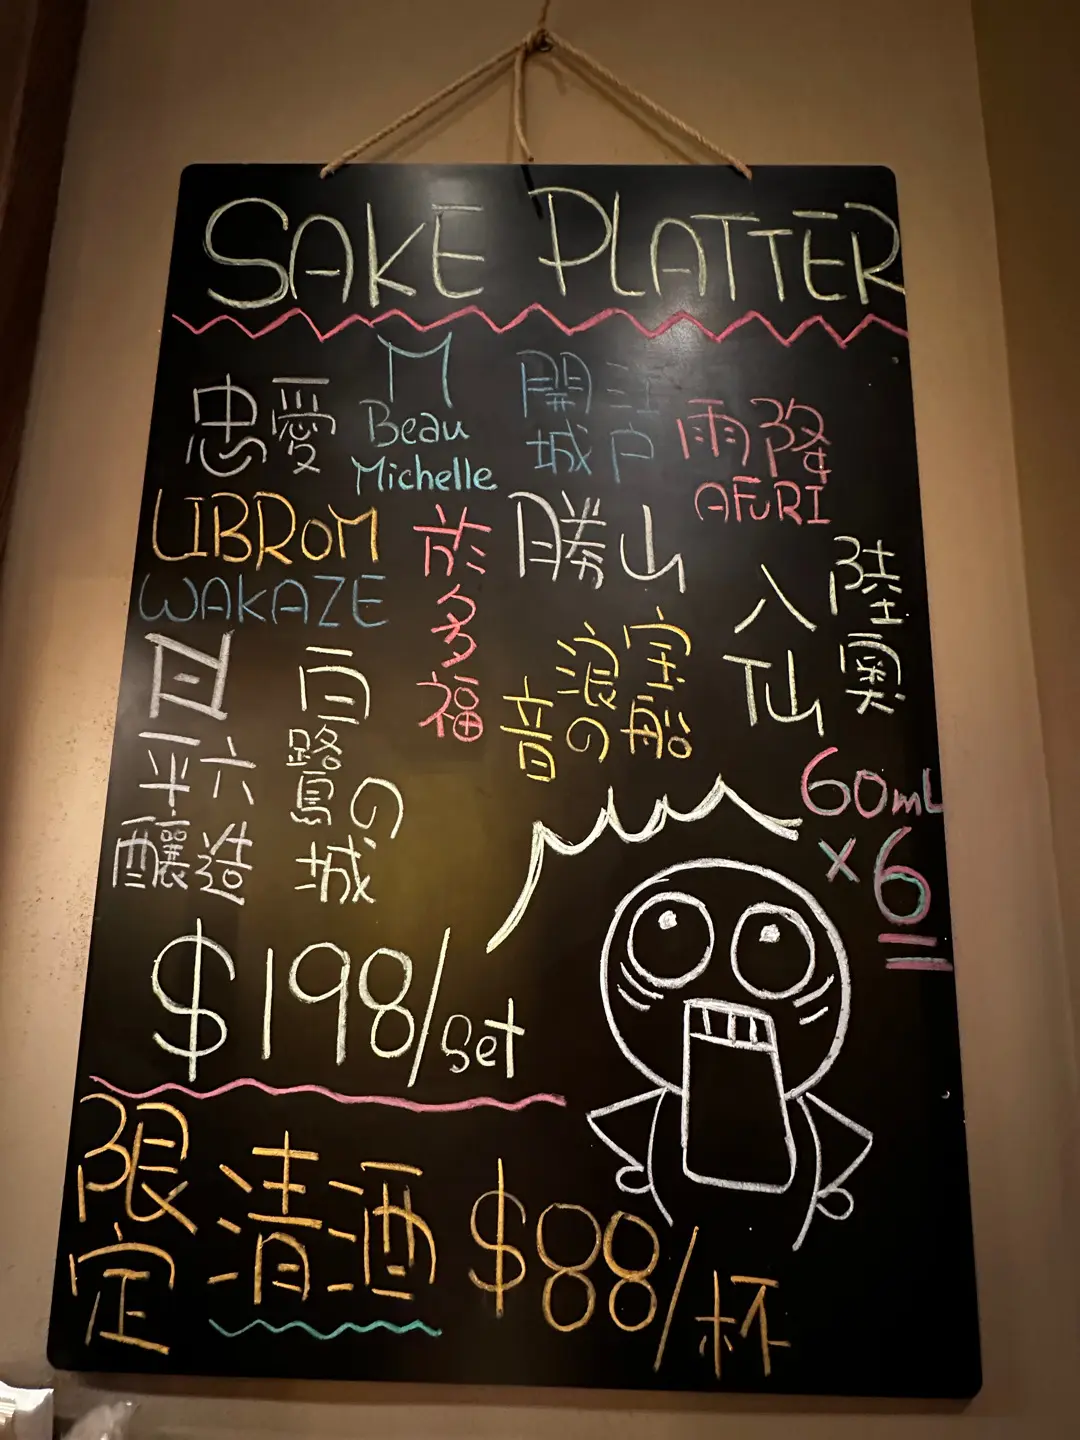 SAKE PLATTER
忠愛
M
Beau
Michelle
江戸
開城
雨降
AFURI
LIBROM
WAKAZE
於多福
勝山
陸奥
八仙
宝船
浪の
音
平六
醸造
白鷺の
城
60mL
×6
$198/set
限定
清酒
$88/杯